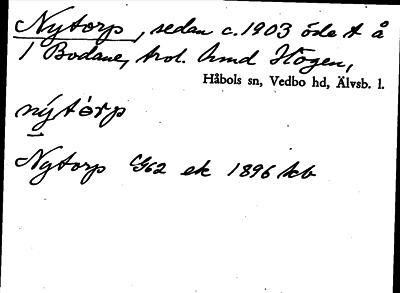 Nytorp, sedan c. 1903 öde t å
1 Bodane, trol. Högen,
Håbols sn, Vedbo hd, Älvsb. l.
nýtòrp
Nytorp G62 ek 1896 kb